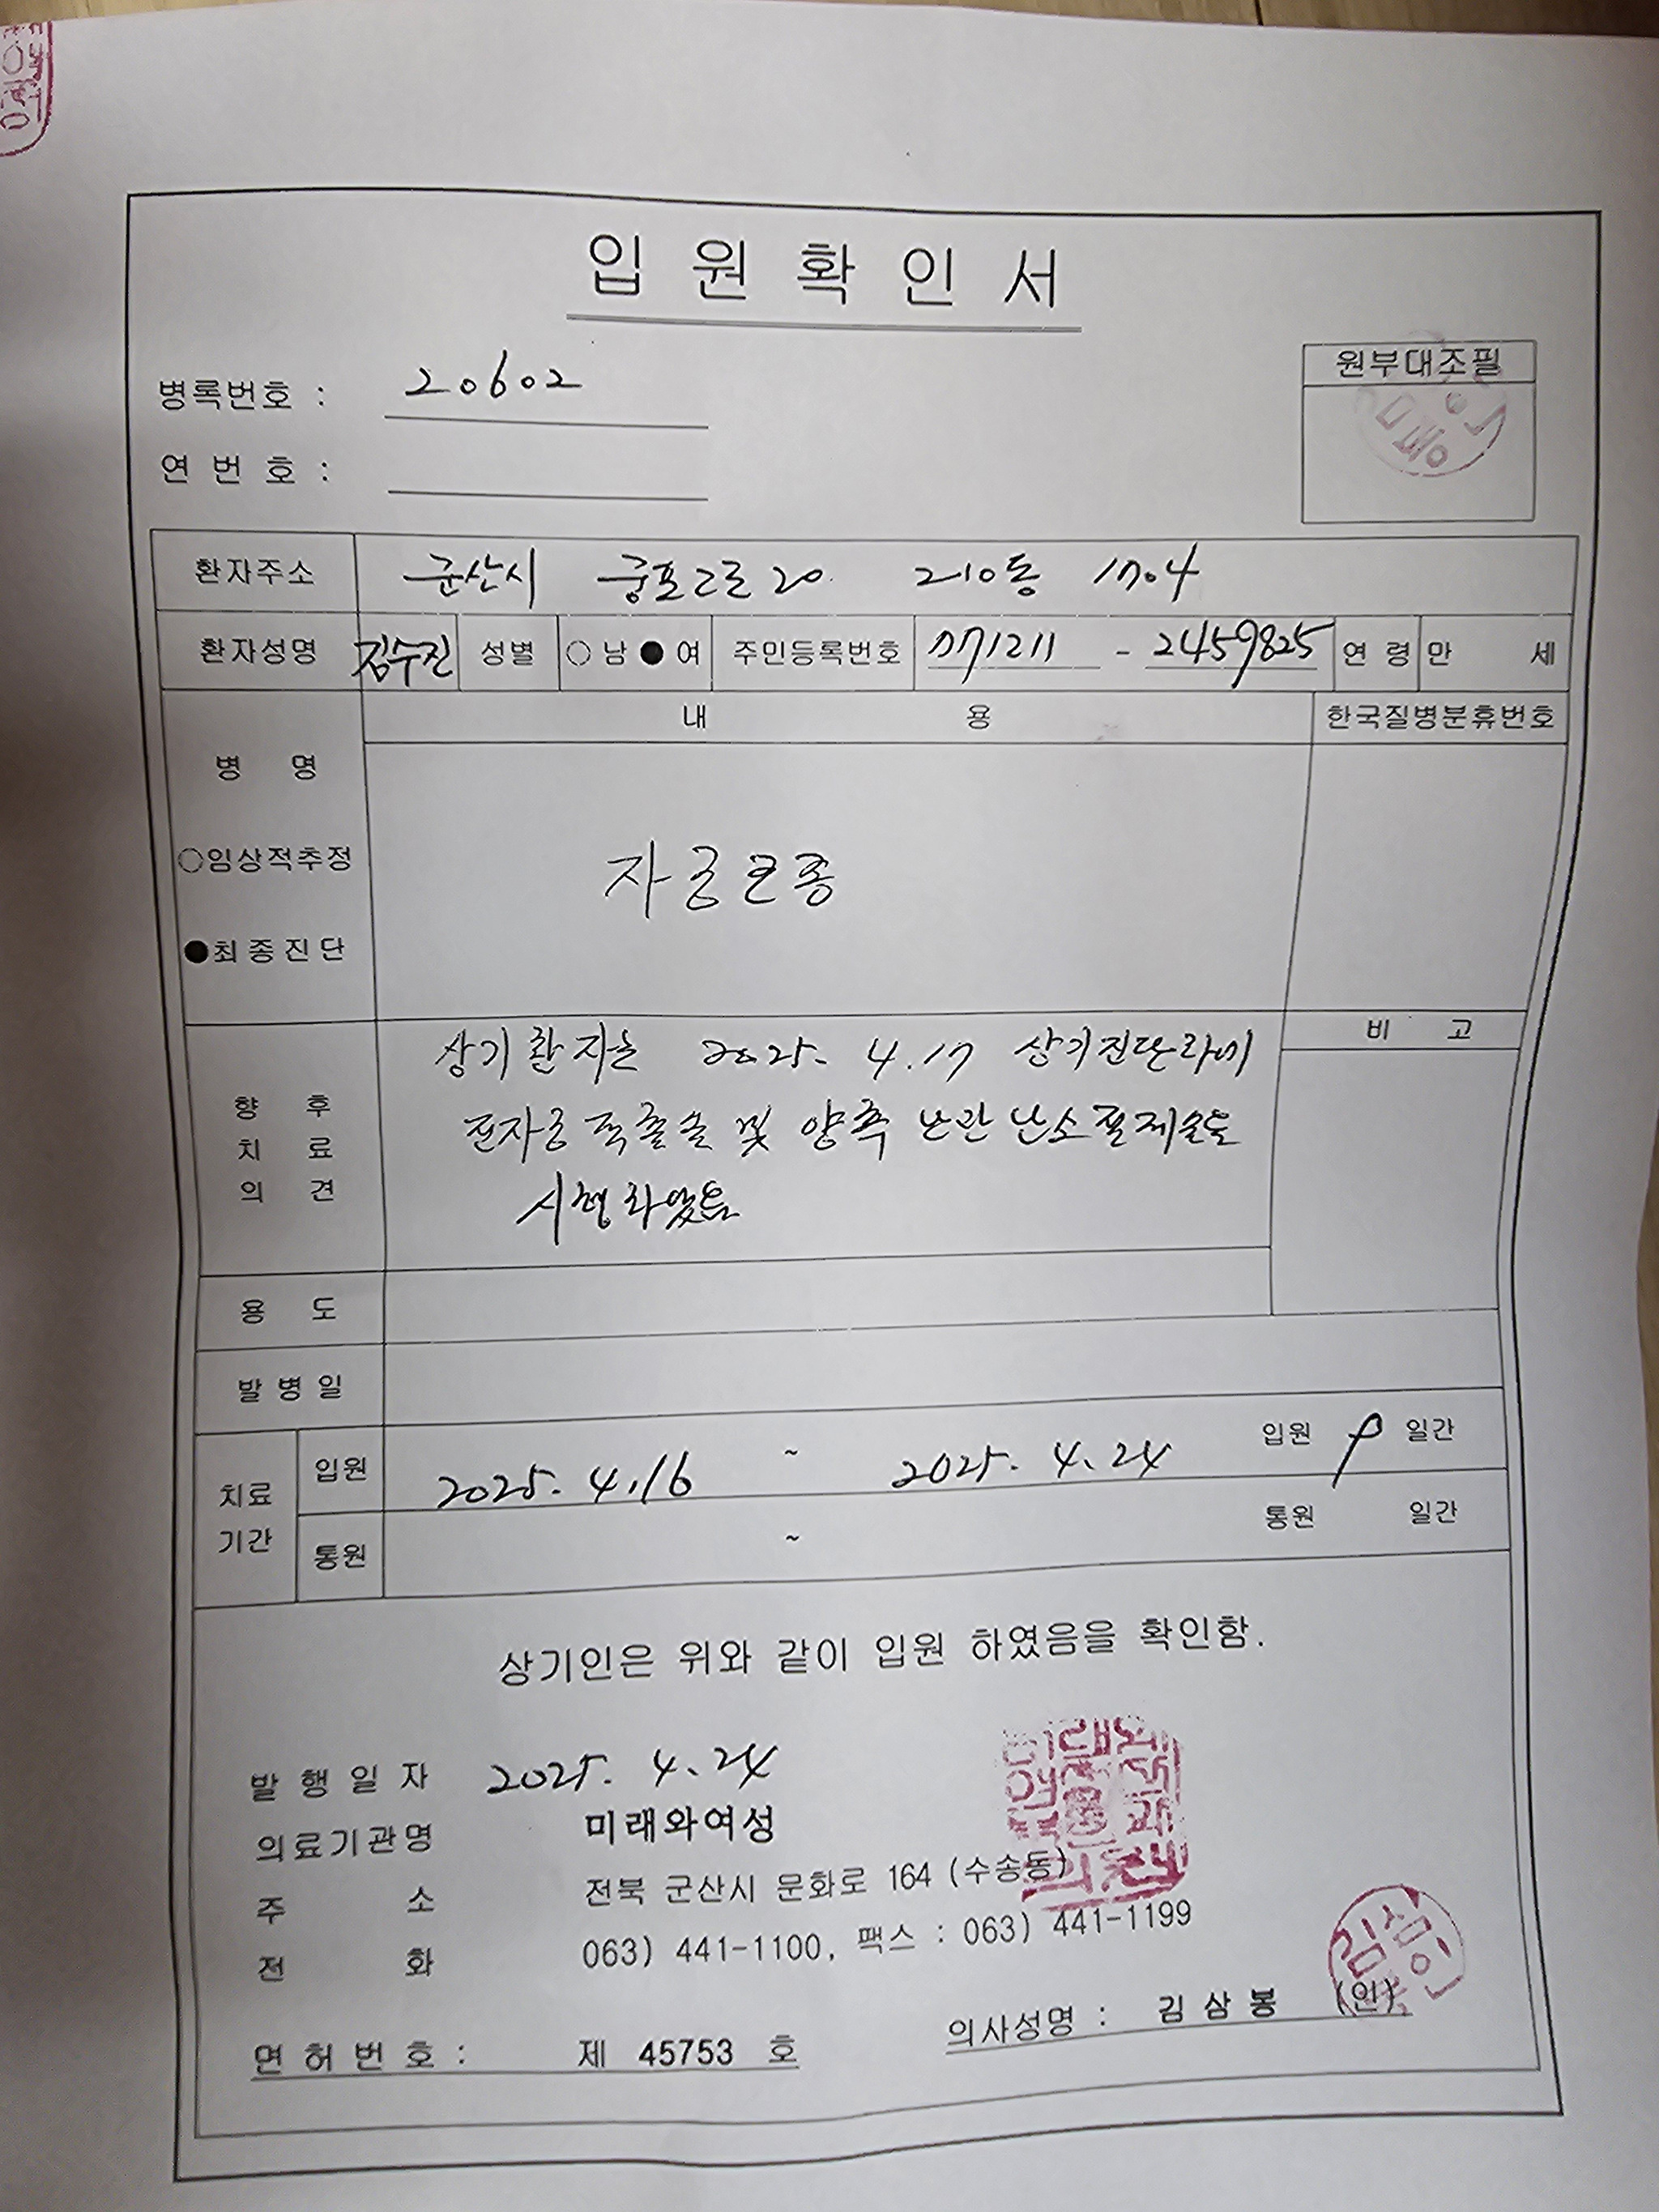 입원확인서
원부대조필
병록번호 : 20602
연번호 :
환자주소 군산시 궁포2로 20 210동 1704
환자성명 김수진 성별 ○남 ●여 주민등록번호 071211 - 2459825 연령 만 세
내 용 한국질병분휴번호
병 명
○임상적추정
●최종진단
자궁근종
비 고
향후치료의견
상기 환자는 2025. 4.17 상기진단하에
전자궁적출술 및 양측 난관난소절제술을
시행하였음
용 도
발병일
치료기간
입원 2025. 4.16 ~ 2025. 4.24 입원 9 일간
통원 ~ 통원 일간
상기인은 위와 같이 입원 하였음을 확인함.
발행일자 2025. 4.24
의료기관명 미래와여성
주 소 전북 군산시 문화로 164 (수송동)
전 화 063) 441-1100, 팩스 : 063) 441-1199
면허번호 : 제 45753 호 의사성명 : 김삼봉 (인)